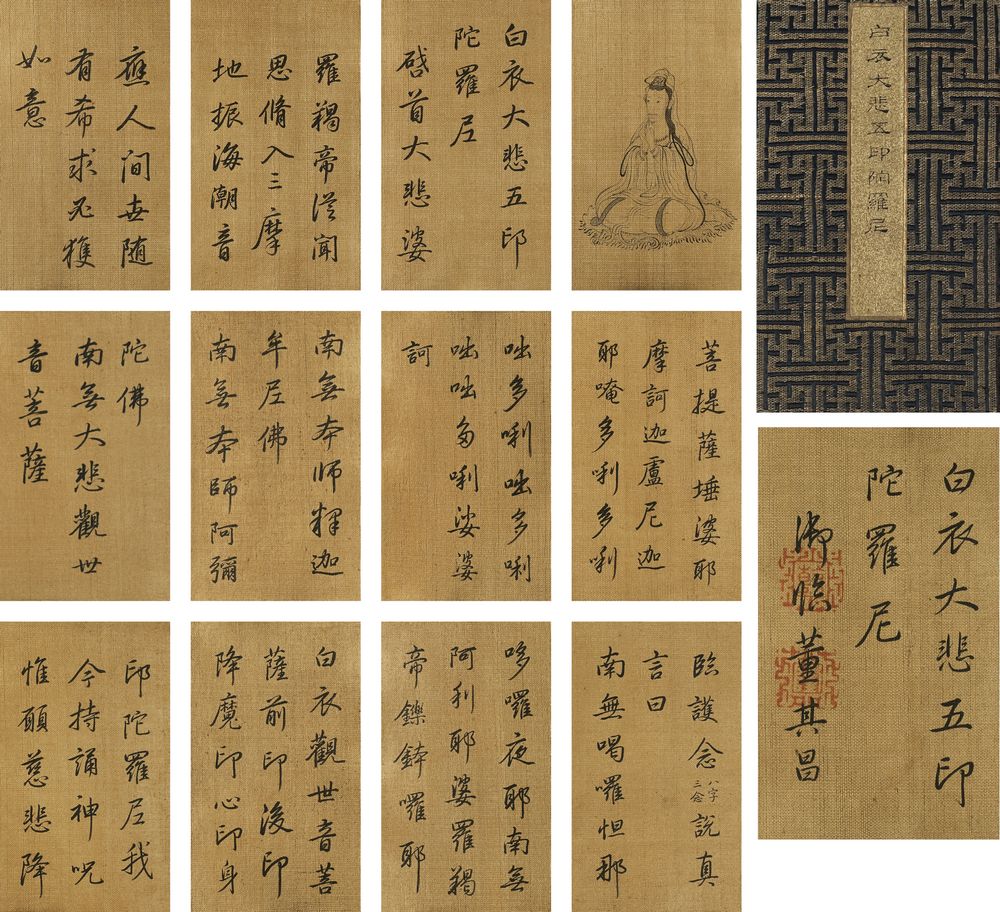 白衣大悲五印陀羅尼
白衣大悲五印
陀羅尼
御臨董其昌
白衣大悲五印
陀羅尼
啓首大悲婆
羅羯帝從聞
思脩入三摩
地振海潮音
應人間世随
有希求必獲
如意
菩提薩埵婆耶
摩訶迦盧尼迦
耶唵多唎多唎
咄多唎咄多唎
咄咄多唎娑婆
訶
南無本師釋迦
牟尼佛
南無本師阿彌
陀佛
南無大悲觀世
音菩薩
臨護念八字三念說真
言曰
南無喝囉怛那
哆囉夜耶南無
阿利耶婆羅羯
帝鑠鉢囉耶
白衣觀世音菩
薩前印後印
降魔印心印身
印陀羅尼我
今持誦神呪
惟願慈悲降